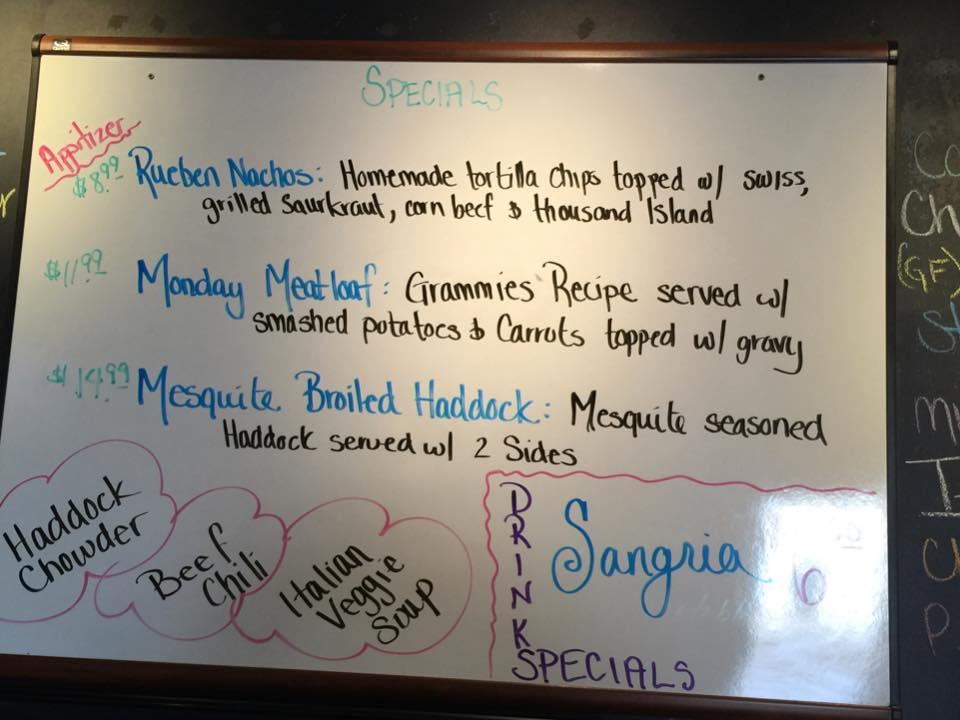 SPECIALS
Appitizer
$8.99 Rueben Nachos: Homemade tortilla chips topped w/ swiss,
grilled saurkraut, corn beef & thousand Island
$11.99 Monday Meatloaf: Grammies Recipe served w/
smashed potatoes & Carrots topped w/ gravy
$14.99 Mesquite Broiled Haddock: Mesquite seasoned
Haddock served w/ 2 Sides
Haddock
Chowder
Beef
Chili
Italian
Veggie
Soup
DRINK
SPECIALS
Sangria
Ch
(GF)